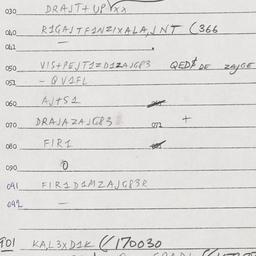 030 DRAJT+UPYXX
040 R1GAJTF1NZIXALA,JNT (366
041 —
050 VIS+PEJT1ZD1ZAJG83 QED$DE ZAJGE
051 - QV1FL
060 AJ+S1
070 DRAJAZAJG83 071 +
080 FIR1
090 0
091 FIR1D1MZAJG83R
092 —
101 KA,L3XD1K (/170030